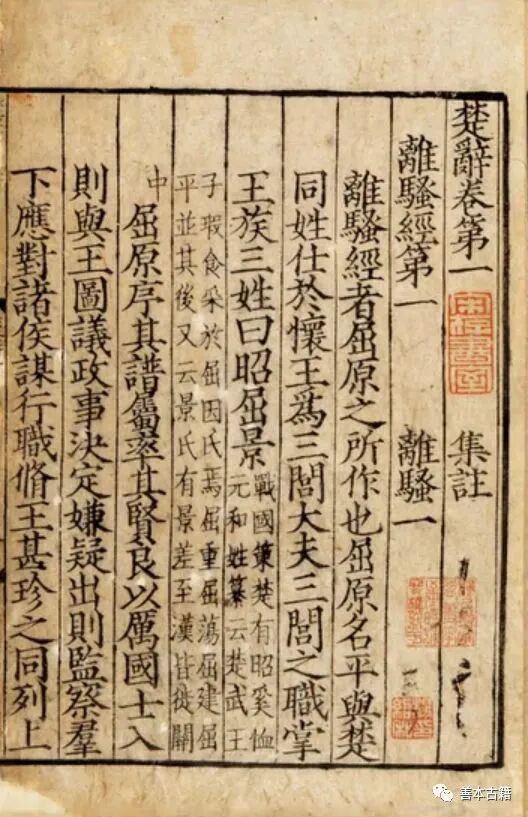 楚辭卷第一 集註
離騷經第一 離騷一
離騷經者屈原之所作也屈原名平與楚
同姓仕於懷王爲三閭大夫三閭之職掌
王族三姓曰昭屈景戰國策楚有昭奚恤
元和姓纂云楚武王
子瑕食采於屈因氏焉屈重屈蕩屈建屈
平並其後又云景氏有景差至漢皆徙關
中屈原序其譜屬率其賢良以厲國士入
則與王圖議政事決定嫌疑出則監察羣
下應對諸侯謀行職脩王甚珍之同列上
善本古籍